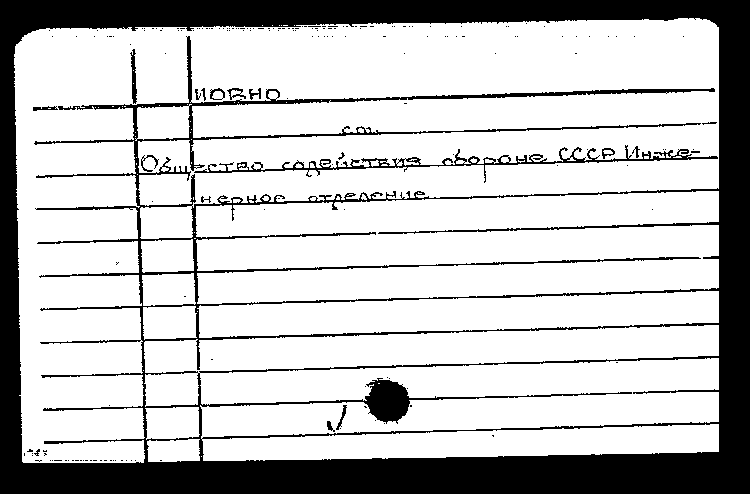 ИОВНО
см.
Общество содействия обороне СССР Инже-
нерное отделение